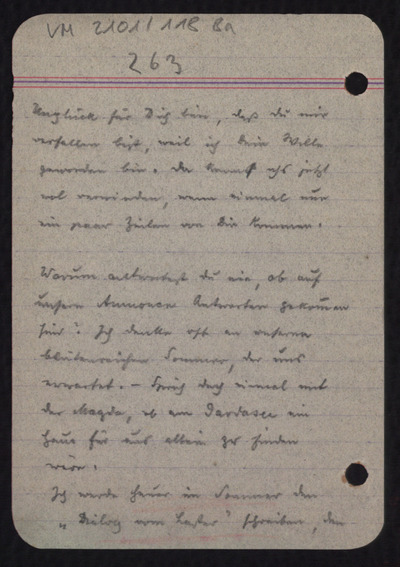 VM 2101/118 Ba
263
Unglück für Dich bin, daß du mir
verfallen bist, weil ich Dein Wille
geworden bin. Du kannst es jetzt
wol vermeiden, wenn einmal nur
ein paar Zeilen von Dir kommen.
Warum antwortest du nie, ob auf
unsere Annonce Antworten gekommen
sind? Ich denke oft an unseren
blütenreichen Sommer, der uns
erwartet. – Sprich doch einmal mit
der Magda, ob am Gardasee ein
Haus für uns allein zu finden
wäre.
Ich werde heuer im Sommer den
„Dialog vom Laster" schreiben, den